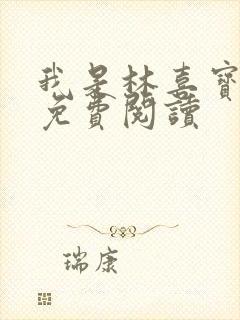 我是林喜寶
免費閱讀
瑞康